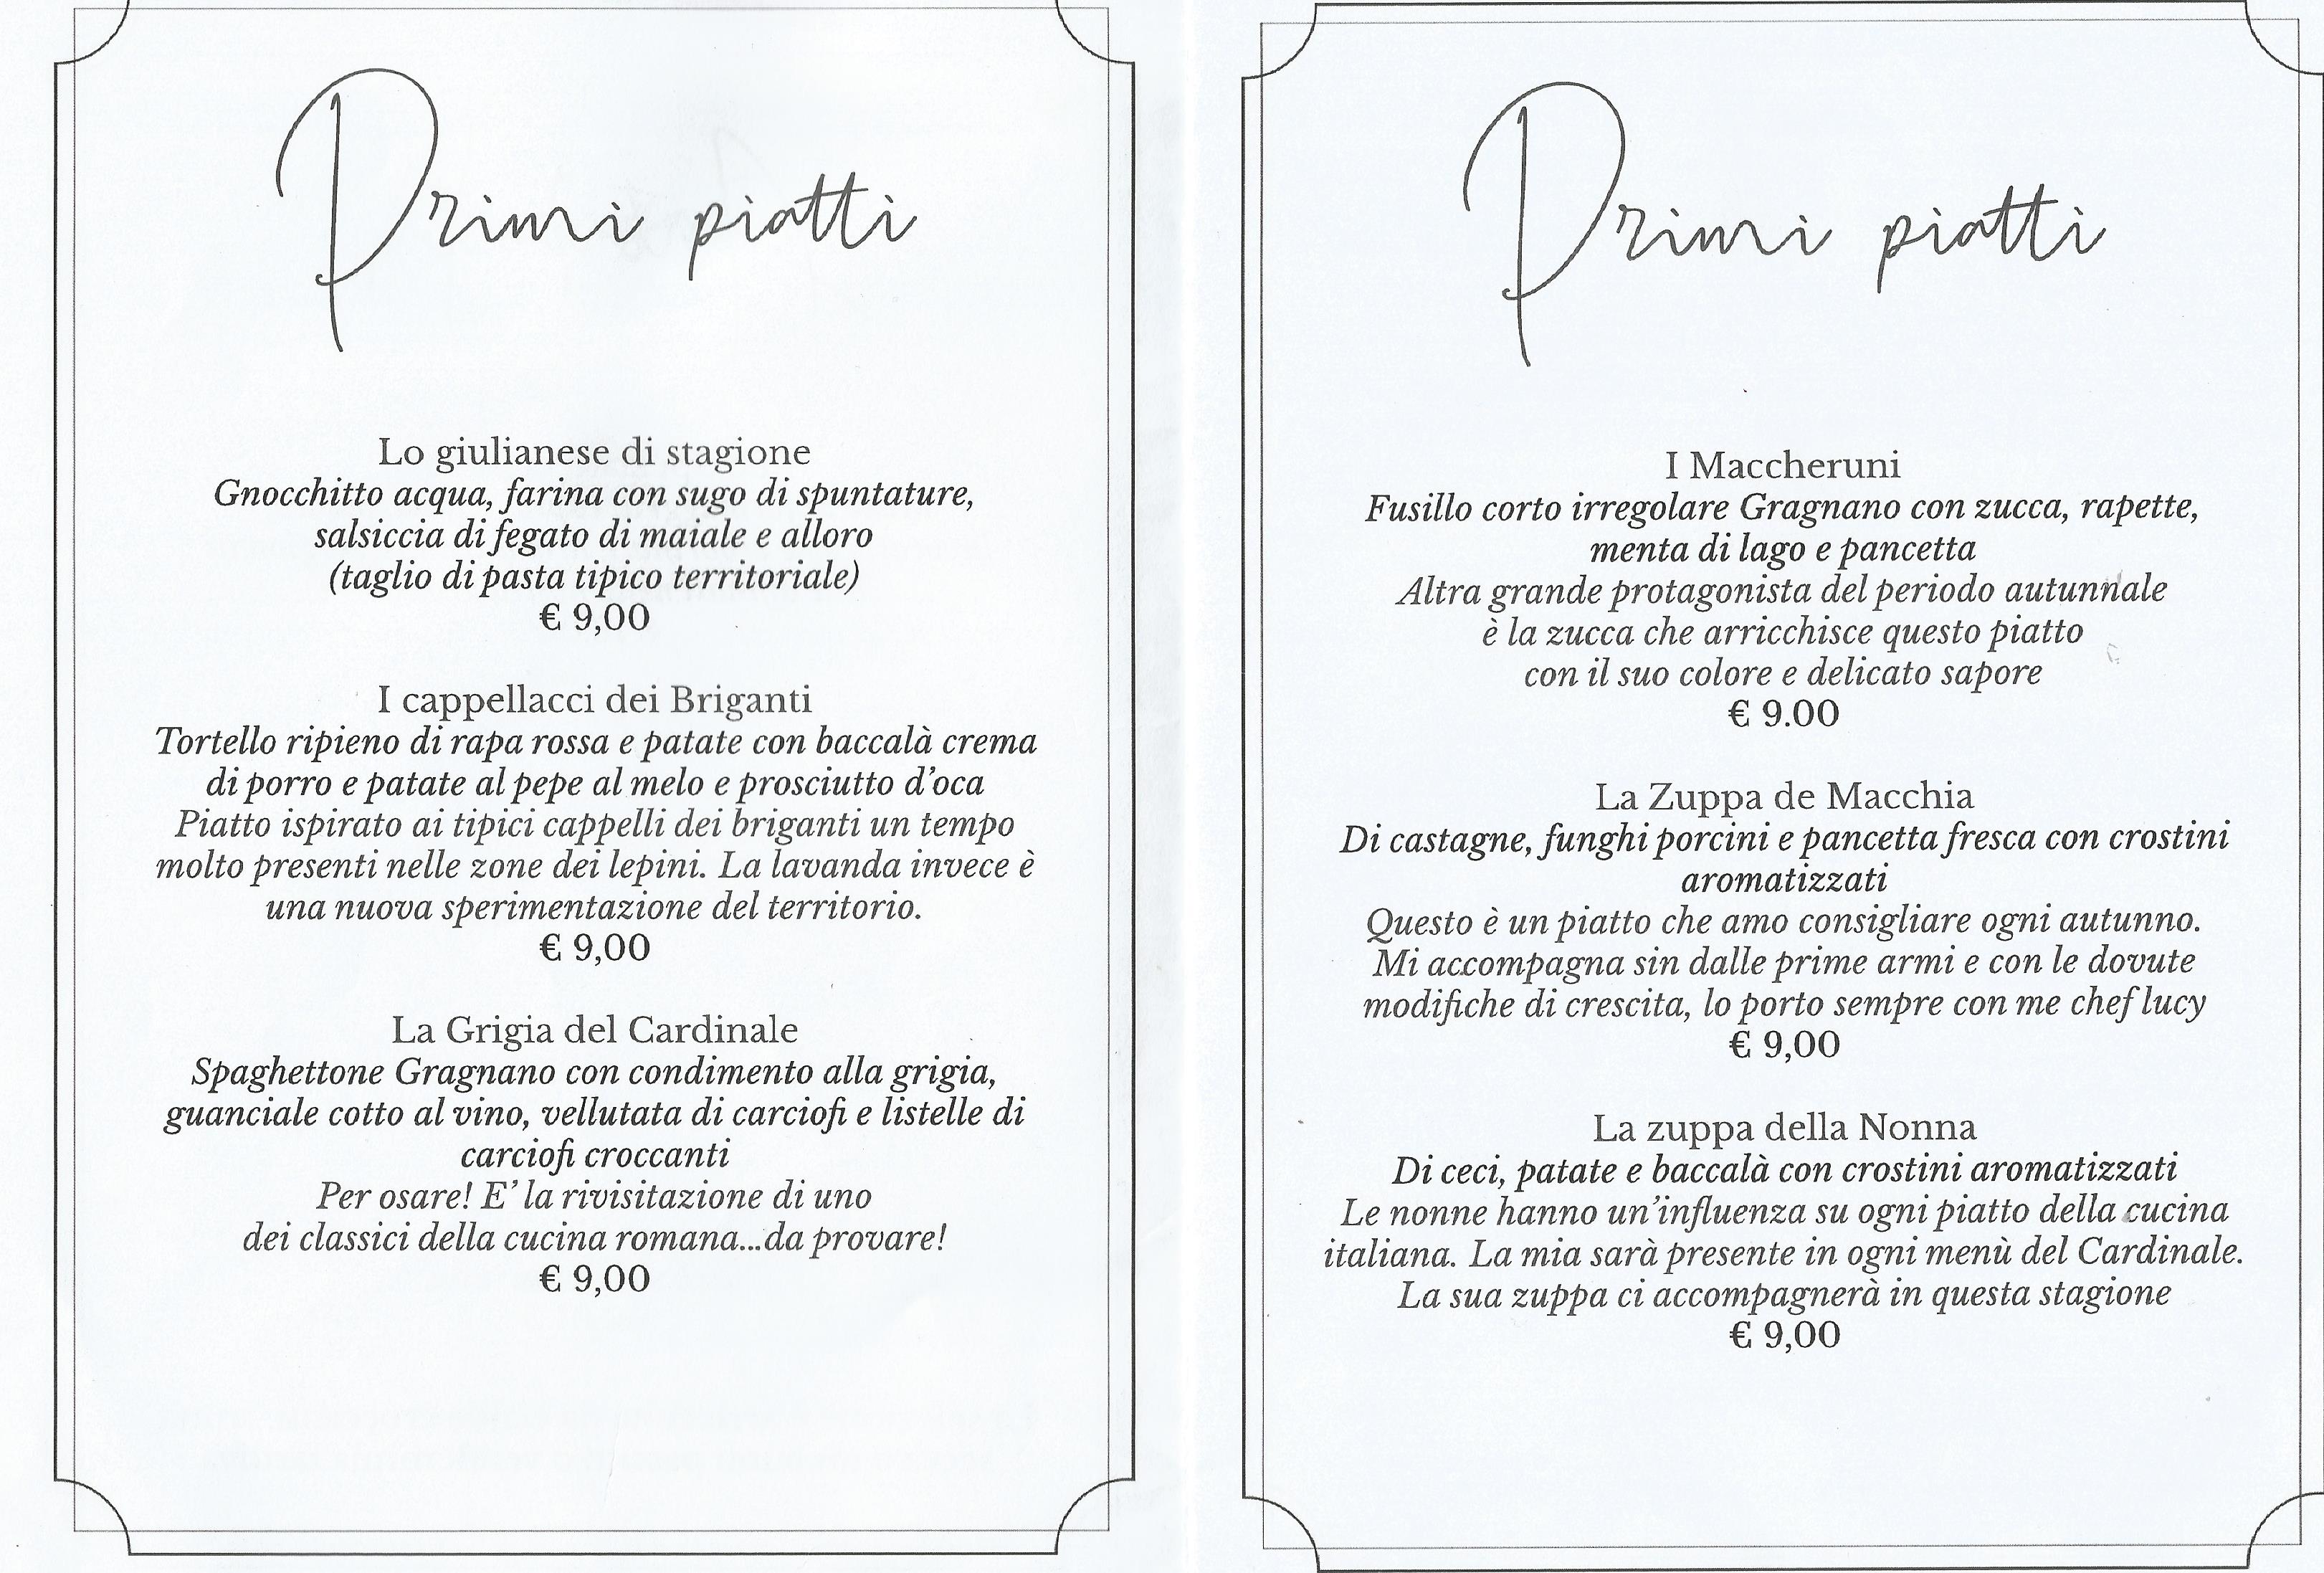 Primi piatti
Lo giulianese di stagione
Gnocchitto acqua, farina con sugo di spuntature,
salsiccia di fegato di maiale e alloro
(taglio di pasta tipico territoriale)
€ 9,00
I cappellacci dei Briganti
Tortello ripieno di rapa rossa e patate con baccalà crema
di porro e patate al pepe al melo e prosciutto d'oca
Piatto ispirato ai tipici cappelli dei briganti un tempo
molto presenti nelle zone dei lepini. La lavanda invece è
una nuova sperimentazione del territorio.
€ 9,00
La Grigia del Cardinale
Spaghettone Gragnano con condimento alla grigia,
guanciale cotto al vino, vellutata di carciofi e listelle di
carciofi croccanti
Per osare! E' la rivisitazione di uno
dei classici della cucina romana...da provare!
€ 9,00
Primi piatti
I Maccheruni
Fusillo corto irregolare Gragnano con zucca, rapette,
menta di lago e pancetta
Altra grande protagonista del periodo autunnale
è la zucca che arricchisce questo piatto
con il suo colore e delicato sapore
€ 9.00
La Zuppa de Macchia
Di castagne, funghi porcini e pancetta fresca con crostini
aromatizzati
Questo è un piatto che amo consigliare ogni autunno.
Mi accompagna sin dalle prime armi e con le dovute
modifiche di crescita, lo porto sempre con me chef lucy
€ 9,00
La zuppa della Nonna
Di ceci, patate e baccalà con crostini aromatizzati
Le nonne hanno un'influenza su ogni piatto della cucina
italiana. La mia sarà presente in ogni menù del Cardinale.
La sua zuppa ci accompagnerà in questa stagione
€ 9,00